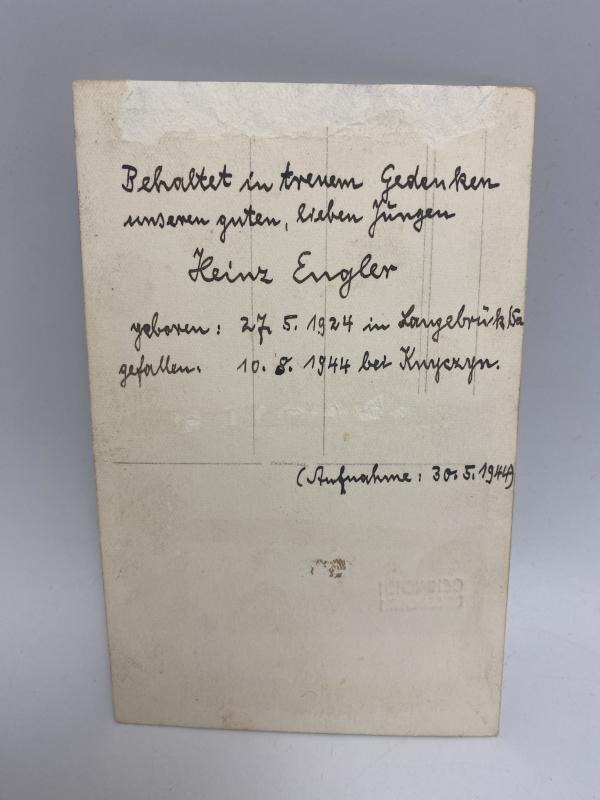 Behaltet in treuem Gedenken
unseren guten, lieben Jungen
Heinz Engler
geboren: 27. 5. 1924 in Langebrück/Sa
gefallen. 10. 8. 1944 bei Knyczyn.
(Aufnahme: 30.5.1944)